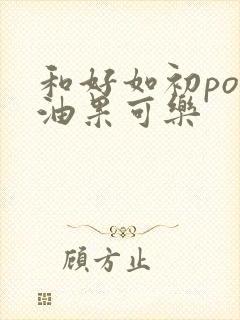 和好如初po
油果可樂
顧方止